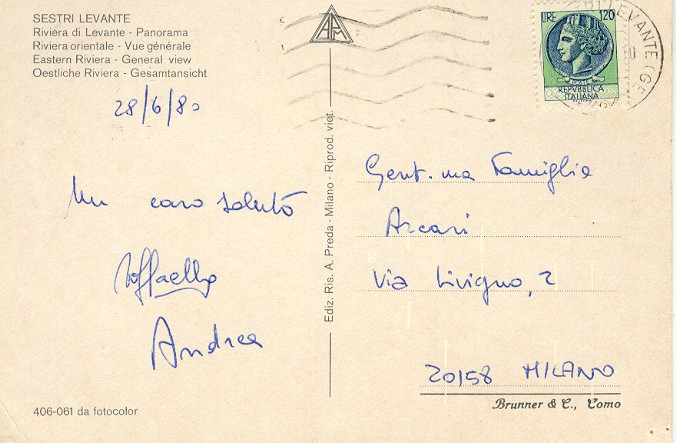 SESTRI LEVANTE
Riviera di Levante - Panorama
Riviera orientale - Vue générale
Eastern Riviera - General view
Oestliche Riviera - Gesamtansicht
28/6/80
Un caro saluto
Raffaella
Andrea
406-061 da fotocolor
Ediz. Ris. A. Preda - Milano - Riprod. viet.
LIRE 120
REPVBBLICA
ITALIANA
LEVANTE (GE
Gent.ma Famiglia
Arcari
Via Livigno, 2
20158 MILANO
Brunner & C., Como